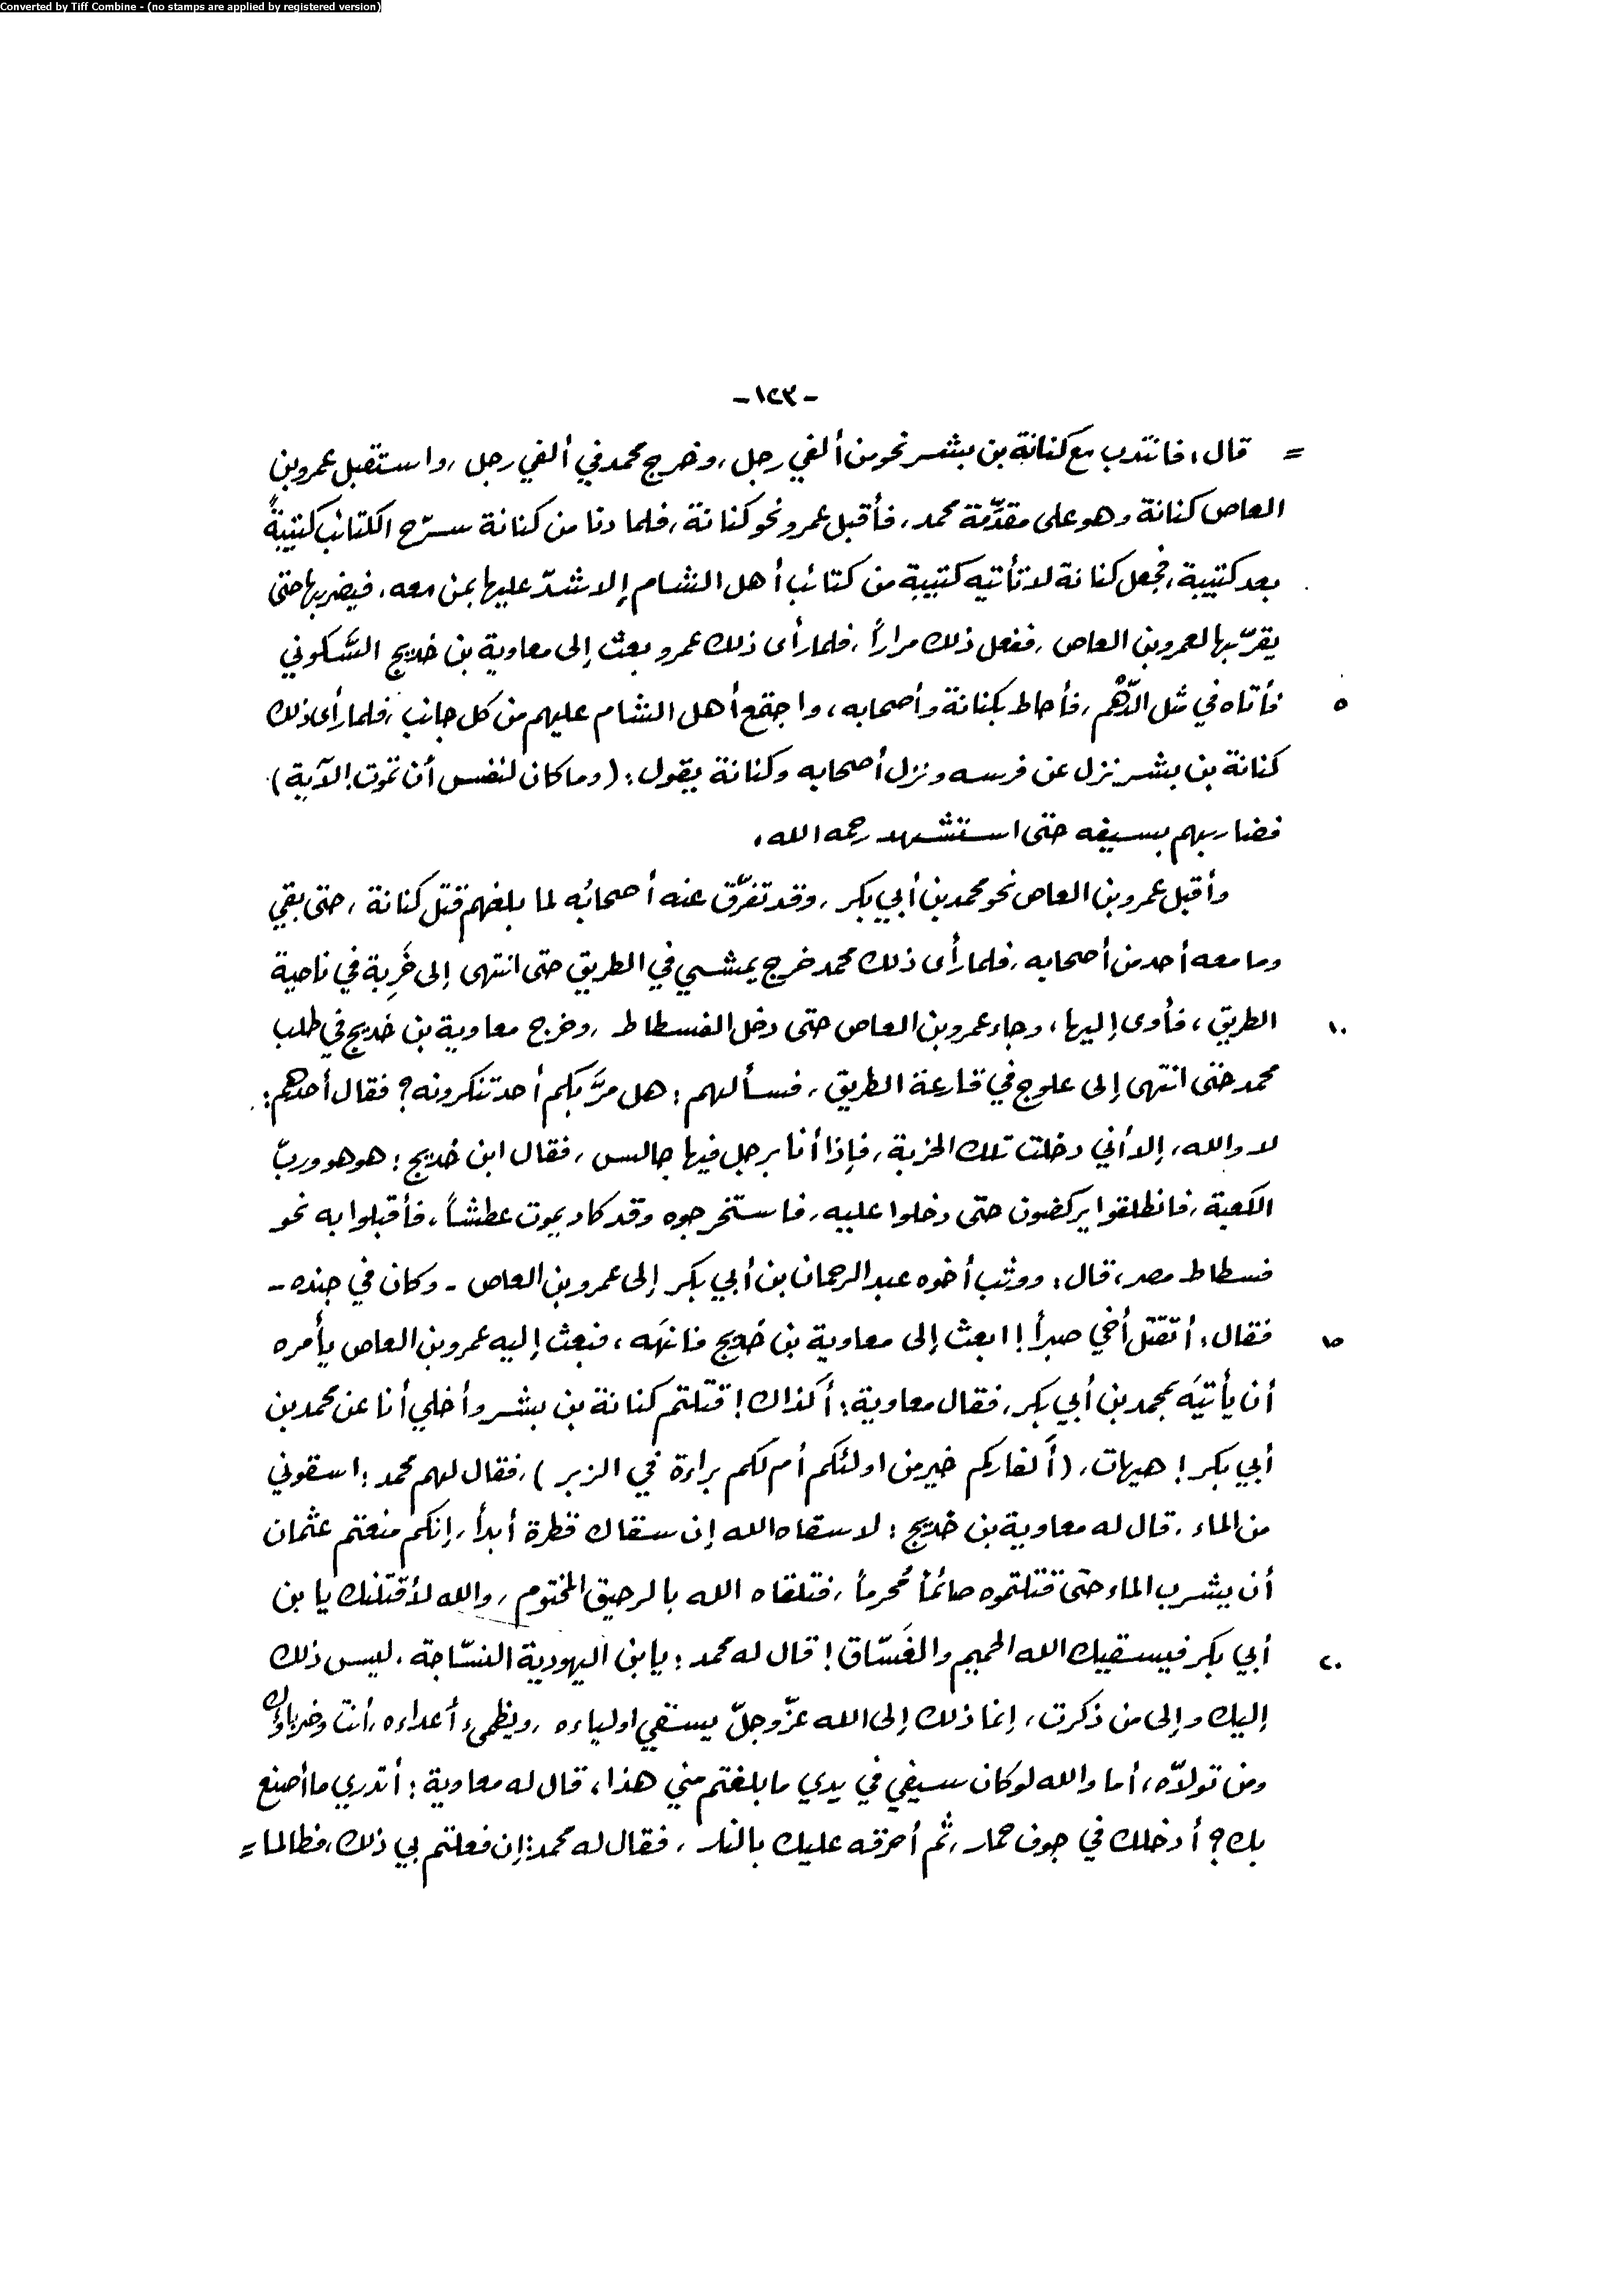 Converted by Tiff Combine - (no stamps are applied by registered version)
-١٢٣-
= قال، فانتدب مع كنانة بن بشر نحو من ألفي رجل، وخرج محمد في ألفي رجل، واستقبل عمرو بن
العاص كنانة وهو على مقدّمة محمد، فأقبل عمرو نحو كنانة، فلما دنا من كنانة سرّح الكتائب كتيبةً
بعد كتيبة، فجعل كنانة لا تأتيه كتيبة من كتائب أهل الشام إلا شدّ عليها بمن معه، فيضربها حتى
يقرّبها لعمرو بن العاص، ففعل ذلك مراراً، فلما رأى ذلك عمرو بعث إلى معاوية بن خديج السَّكوني
٥ فأتاه في مثل الدّهْم، فأحاط بكنانة وأصحابه، واجتمع أهل الشام عليهم من كل جانب، فلما رأى ذلك
كنانة بن بشر نزل عن فرسه ونزل أصحابه وكنانة يقول: (وما كان لنفس أن تموت إلآية)
فضاربهم بسيفه حتى استشهد رحمه الله.
وأقبل عمرو بن العاص نحو محمد بن أبي بكر، وقد تفرّق عنه أصحابُه لما بلغهم قتل كنانة، حتى بقي
وما معه أحد من أصحابه، فلما رأى ذلك محمد خرج يمشي في الطريق حتى انتهى إلى خَرِبة في ناحية
١٠ الطريق، فأوى إليها، وجاء عمرو بن العاص حتى دخل الفسطاط، وخرج معاوية بن خديج في طلب
محمد حتى انتهى إلى علوج في قارعة الطريق، فسألهم: هل مرَّ بكم أحد تنكرونه؟ فقال أحدهم:
لا والله، إلا أني دخلت تلك الخربة، فإذا أنا برجل فيها جالس، فقال ابن خديج: هو هو وربّ
الكعبة، فانطلقوا يركضون حتى دخلوا عليه، فاستخرجوه وقد كاد يموت عطشاً، فأقبلوا به نحو
فسطاط مصر، قال: ووثب أخوه عبد الرحمان بن أبي بكر إلى عمرو بن العاص - وكان في جنده -
١٥ فقال: أتقتل أخي صبراً! ابعث إلى معاوية بن خديج فانهَه، فبعث إليه عمرو بن العاص يأمره
أن يأتيَه بمحمد بن أبي بكر، فقال معاوية: أكذاك! قتلتم كنانة بن بشر وأخلي أنا عن محمد بن
أبي بكر! هيهات، (أَكفاركم خير من اولئكم أم لكم براءة في الزبر)، فقال لهم محمد: اسقوني
من الماء، قال له معاوية بن خديج: لا سقاه الله إن سقاك قطرة أبداً، إنكم منعتم عثمان
أن يشرب الماء حتى قتلتموه صائماً مُحرماً، فتلقاه الله بالرحيق المختوم، والله لأقتلنك يا بن
٢٠ أبي بكر فيسقيك الله الحميم والغَسّاق! قال له محمد: يا بن اليهودية النسّاجة، ليس ذلك
إليك وإلى من ذكرت، إنما ذلك إلى الله عزّ وجلّ يسقي اولياءه، ويظمىء أعداءه، أنت وضرباؤك
ومن تولاّه، أما والله لو كان سيفي في يدي ما بلغتم مني هذا، قال له معاوية: أتدري ما أصنع
بك؟ أدخلك في جوف حمار، ثُم أحرقه عليك بالنار، فقال له محمد: إن فعلتم بي ذلك، فطالما =